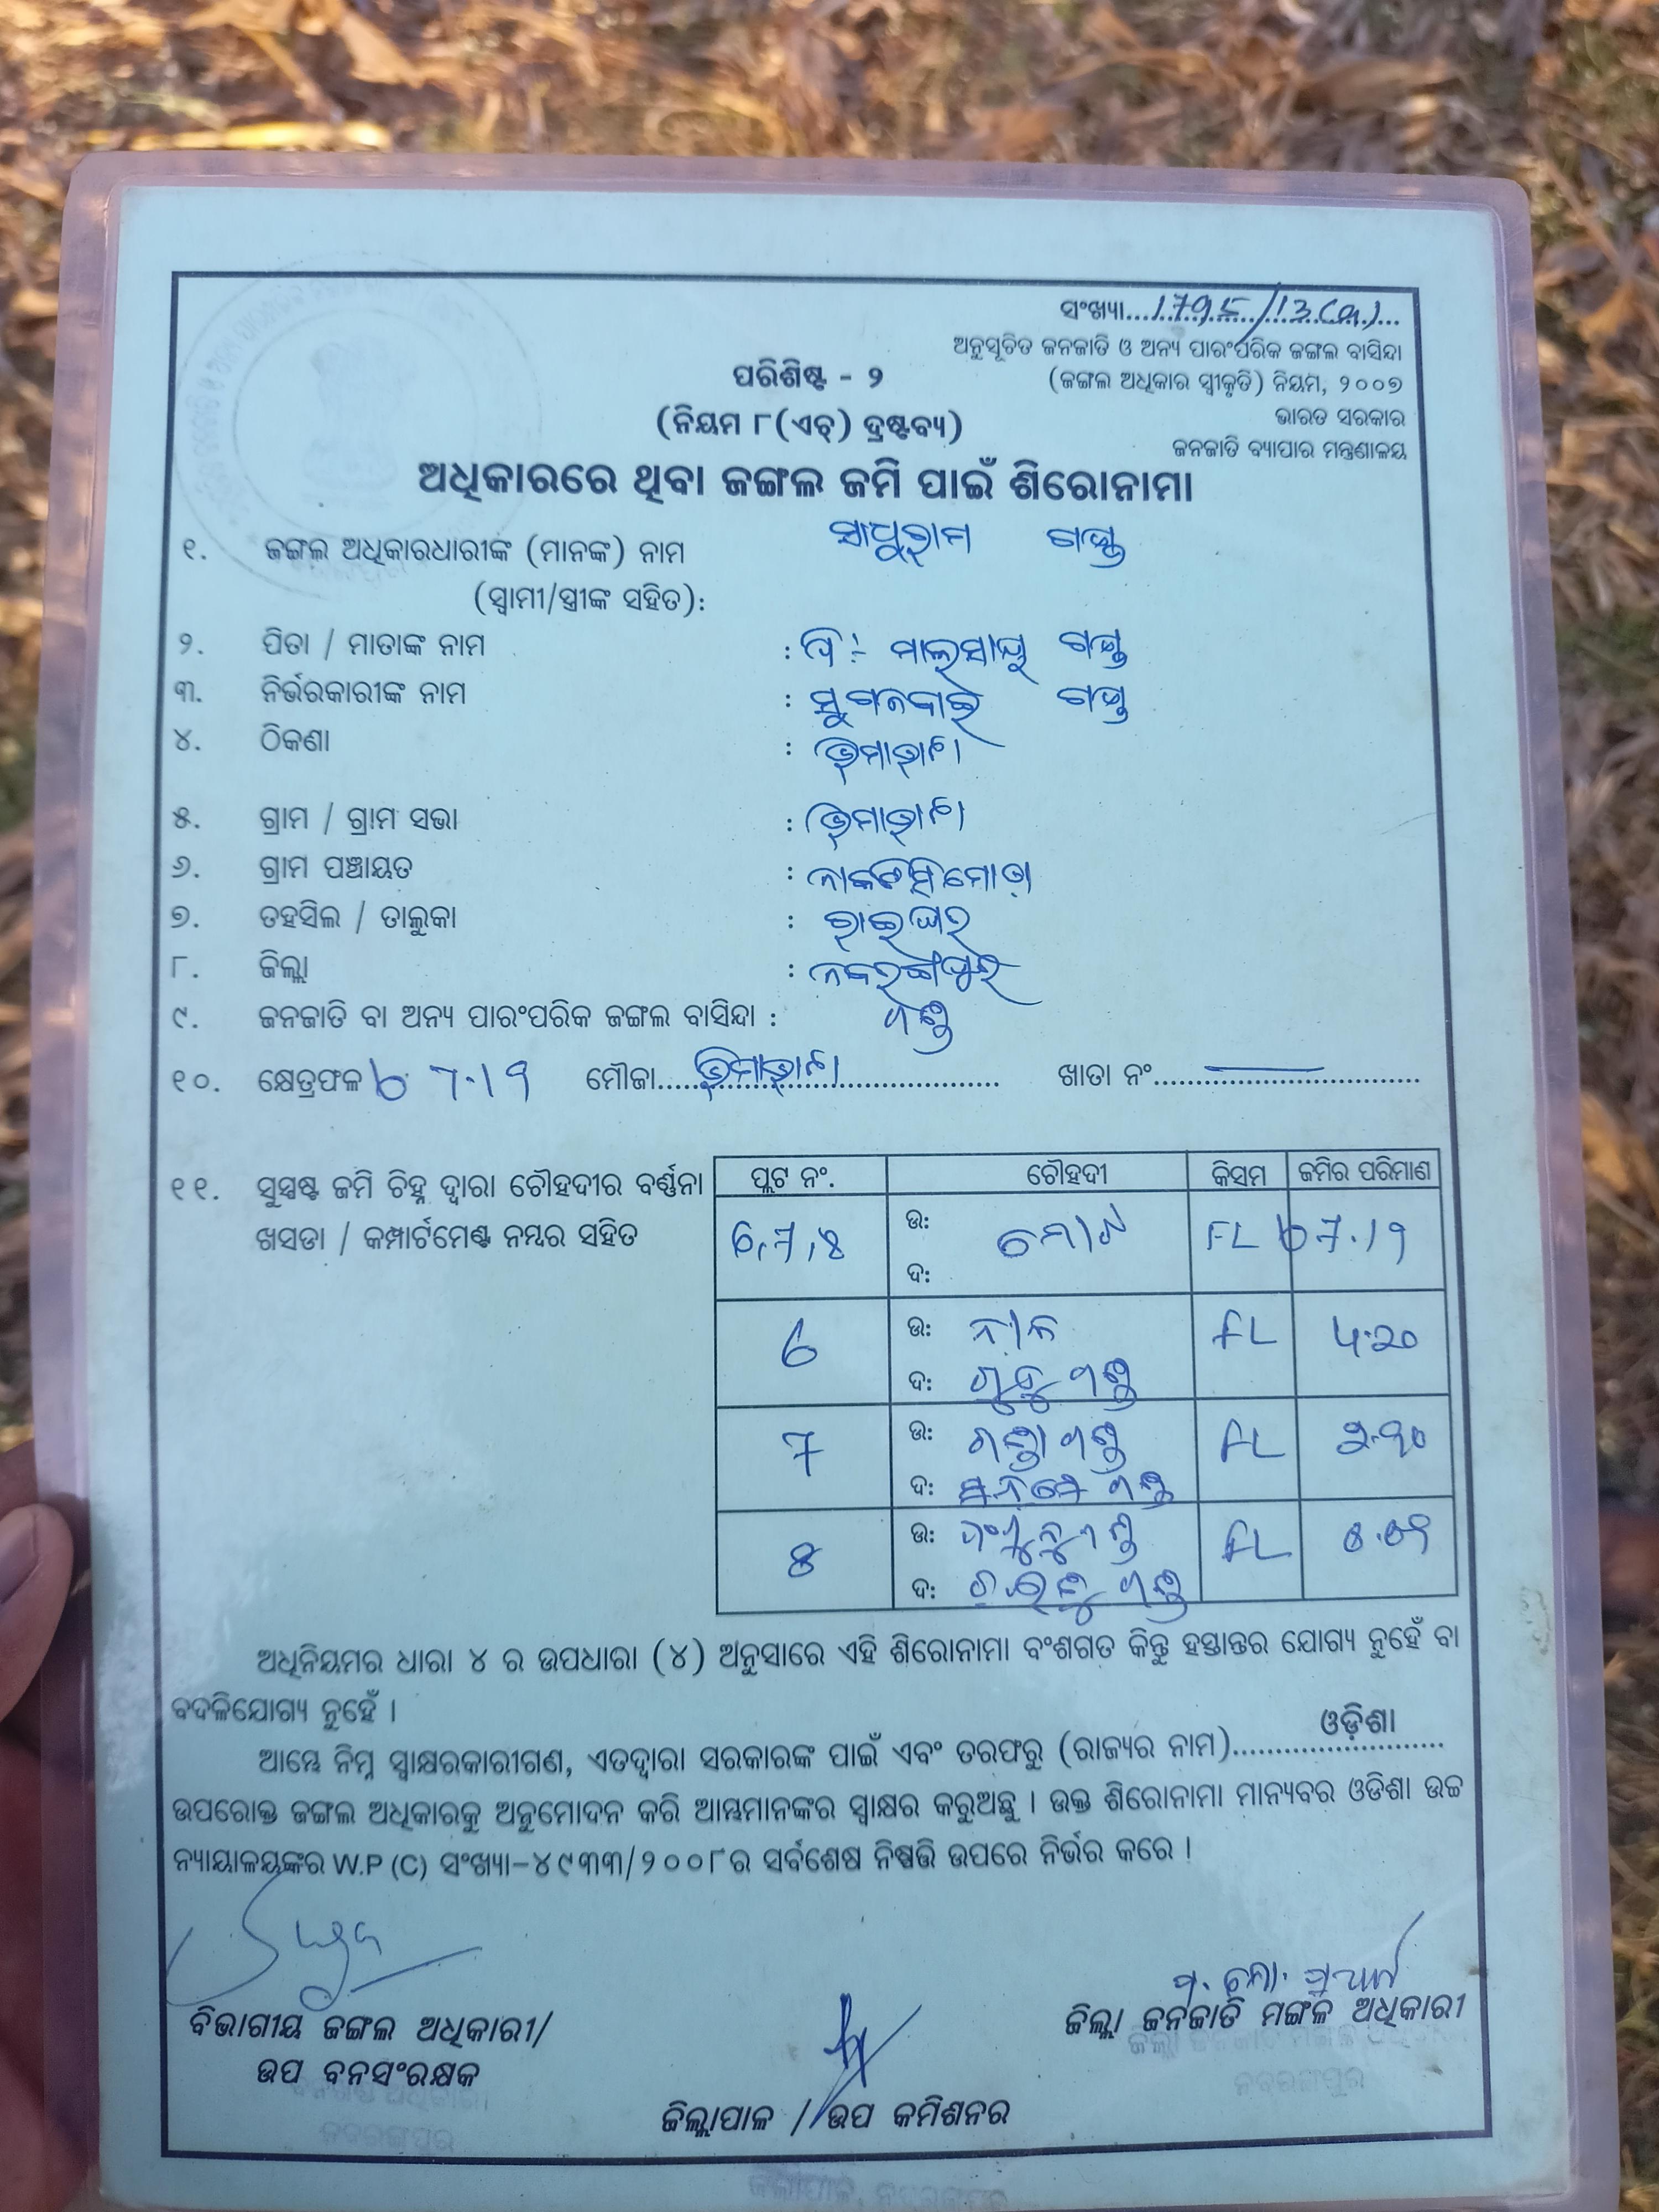 ସଂଖ୍ୟା...1795/13(a)...
ଅନୁସୂଚିତ ଜନଜାତି ଓ ଅନ୍ୟ ପାରଂପରିକ ଜଙ୍ଗଲ ବାସିନ୍ଦା
(ଜଙ୍ଗଲ ଅଧିକାର ସ୍ୱୀକୃତି) ନିୟମ, ୨୦୦୭
ଭାରତ ସରକାର
ଜନଜାତି ବ୍ୟାପାର ମନ୍ତ୍ରଣାଳୟ
ପରିଶିଷ୍ଟ - ୨
(ନିୟମ ୮(ଏଚ୍) ଦ୍ରଷ୍ଟବ୍ୟ)
ଅଧିକାରରେ ଥିବା ଜଙ୍ଗଲ ଜମି ପାଇଁ ଶିରୋନାମା
୧. ଜଙ୍ଗଲ ଅଧିକାରଧାରୀଙ୍କ (ମାନଙ୍କ) ନାମ ସାଧୁରାମ ଗଣ୍ଡ
(ସ୍ୱାମୀ/ସ୍ତ୍ରୀଙ୍କ ସହିତ):
୨. ପିତା / ମାତାଙ୍କ ନାମ : ପି:- ମାଲସାୟ ଗଣ୍ଡ
୩. ନିର୍ଭରକାରୀଙ୍କ ନାମ : ସୁଗନବାଇ ଗଣ୍ଡ
୪. ଠିକଣା :
୫. ଗ୍ରାମ / ଗ୍ରାମ ସଭା :
୬. ଗ୍ରାମ ପଞ୍ଚାୟତ : ନାକଟିସିମୋଡା
୭. ତହସିଲ / ତାଲୁକା : ରାଇଘର
୮. ଜିଲ୍ଲା : ନବରଙ୍ଗପୁର
୯. ଜନଜାତି ବା ଅନ୍ୟ ପାରଂପରିକ ଜଙ୍ଗଲ ବାସିନ୍ଦା : ଗଣ୍ଡ
୧୦. କ୍ଷେତ୍ରଫଳ 7.19 ମୌଜା............ ଖାତା ନଂ............
୧୧. ସୁସ୍ପଷ୍ଟ ଜମି ଚିହ୍ନ ଦ୍ୱାରା ଚୌହଦୀର ବର୍ଣ୍ଣନା
ଖସଡା / କମ୍ପାର୍ଟମେଣ୍ଟ ନମ୍ବର ସହିତ
ପ୍ଲଟ ନଂ. ଚୌହଦୀ କିସମ ଜମିର ପରିମାଣ
6,7,8 ଉ: ଦ: FL 7.19
6 ଉ: ଦ: ଗଣ୍ଡ FL
7 ଉ: ଗଣ୍ଡ ଦ: ଗଣ୍ଡ FL
8 ଉ: ଦ: ଗଣ୍ଡ FL
ଅଧିନିୟମର ଧାରା ୪ ର ଉପଧାରା (୪) ଅନୁସାରେ ଏହି ଶିରୋନାମା ବଂଶଗତ କିନ୍ତୁ ହସ୍ତାନ୍ତର ଯୋଗ୍ୟ ନୁହେଁ ବା
ବଦଳିଯୋଗ୍ୟ ନୁହେଁ ।
ଓଡ଼ିଶା
ଆମ୍ଭେ ନିମ୍ନ ସ୍ୱାକ୍ଷରକାରୀଗଣ, ଏତଦ୍ୱାରା ସରକାରଙ୍କ ପାଇଁ ଏବଂ ତରଫରୁ (ରାଜ୍ୟର ନାମ)............
ଉପରୋକ୍ତ ଜଙ୍ଗଲ ଅଧିକାରକୁ ଅନୁମୋଦନ କରି ଆମ୍ଭମାନଙ୍କର ସ୍ୱାକ୍ଷର କରୁଅଛୁ । ଉକ୍ତ ଶିରୋନାମା ମାନ୍ୟବର ଓଡିଶା ଉଚ୍ଚ
ନ୍ୟାୟାଳୟଙ୍କର W.P (C) ସଂଖ୍ୟା-୪୯୩୩/୨୦୦୮ର ସର୍ବଶେଷ ନିଷ୍ପତ୍ତି ଉପରେ ନିର୍ଭର କରେ ।
ବିଭାଗୀୟ ଜଙ୍ଗଲ ଅଧିକାରୀ/
ଉପ ବନସଂରକ୍ଷକ
ଜିଲ୍ଲା ଜନଜାତି ମଙ୍ଗଳ ଅଧିକାରୀ
ନବରଙ୍ଗପୁର
ଜିଲ୍ଲାପାଳ / ଉପ କମିଶନର
ଜିଲ୍ଲାପାଳ, ନବରଙ୍ଗପୁର